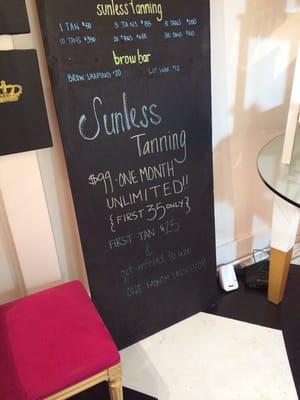 sunless tanning
1 TAN $50 3 TANS 5 TANS
10 TANS 20 TANS 30 TANS
brow bar
BROW SHAPING $20 LIP WAX
Sunless
Tanning
$99-ONE MONTH
UNLIMITED!!
{FIRST 35 ONLY}
FIRST TAN $25
&
get entered to win
ONE MONTH UNLIMITED!!